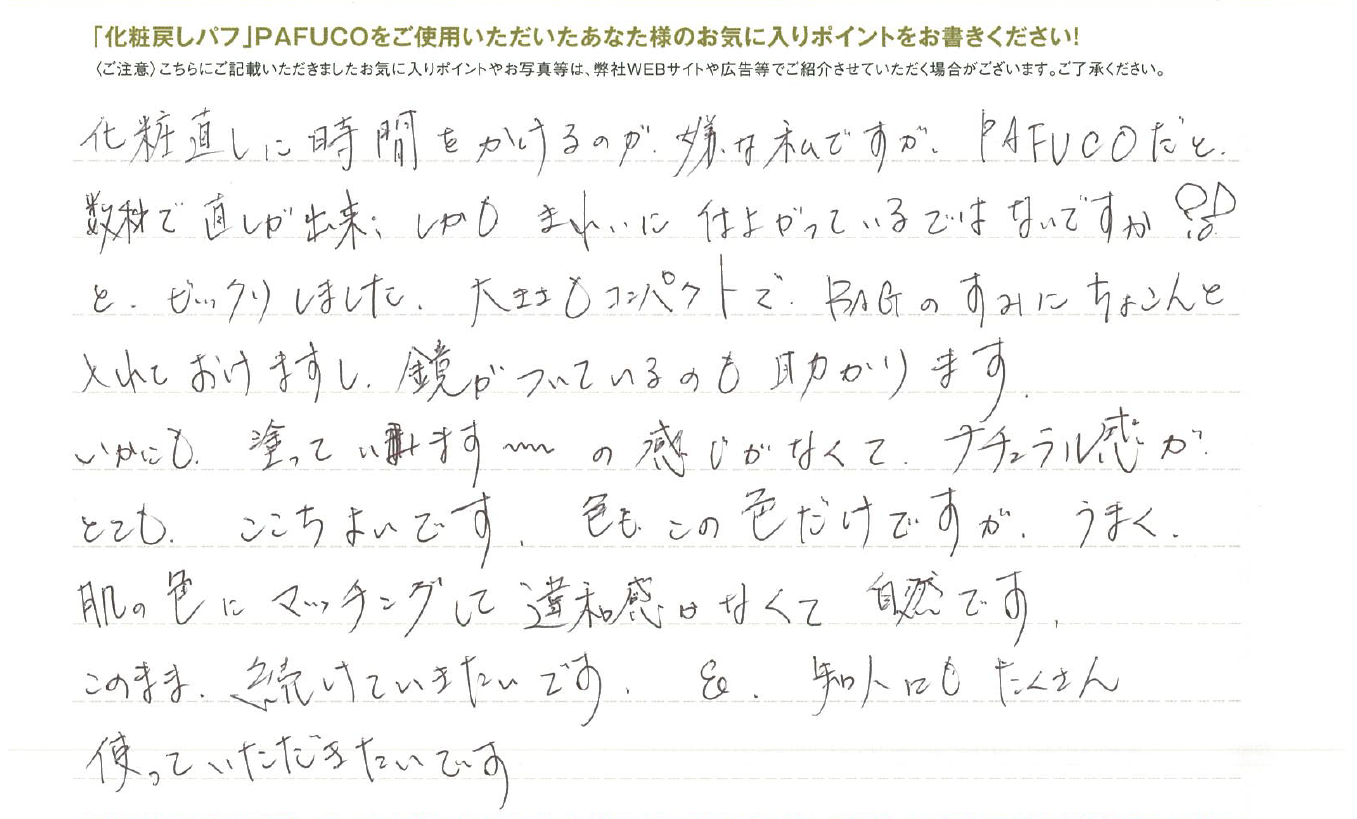 「化粧戻しパフ」PAFUCOをご使用いただいたあなた様のお気に入りポイントをお書きください!
〈ご注意〉こちらにご記載いただきましたお気に入りポイントやお写真等は、弊社WEBサイトや広告等でご紹介させていただく場合がございます。ご了承ください。
化粧直しに時間をかけるのが、嫌な私ですが、PAFUCOだと、
数秒で直しが出来、しかもきれいに仕上がっているではないですか!?
と、ビックリしました。大きさもコンパクトで、BAGのすみにちょこんと
入れておけますし、鏡がついているのも助かります。
いかにも、塗っています〜の感じがなくて、ナチュラル感が
とても、ここちよいです。色もこの色だけですが、うまく、
肌の色にマッチングして違和感はなくて自然です。
このまま、続けていきたいです。&、知人にもたくさん
使っていただきたいです